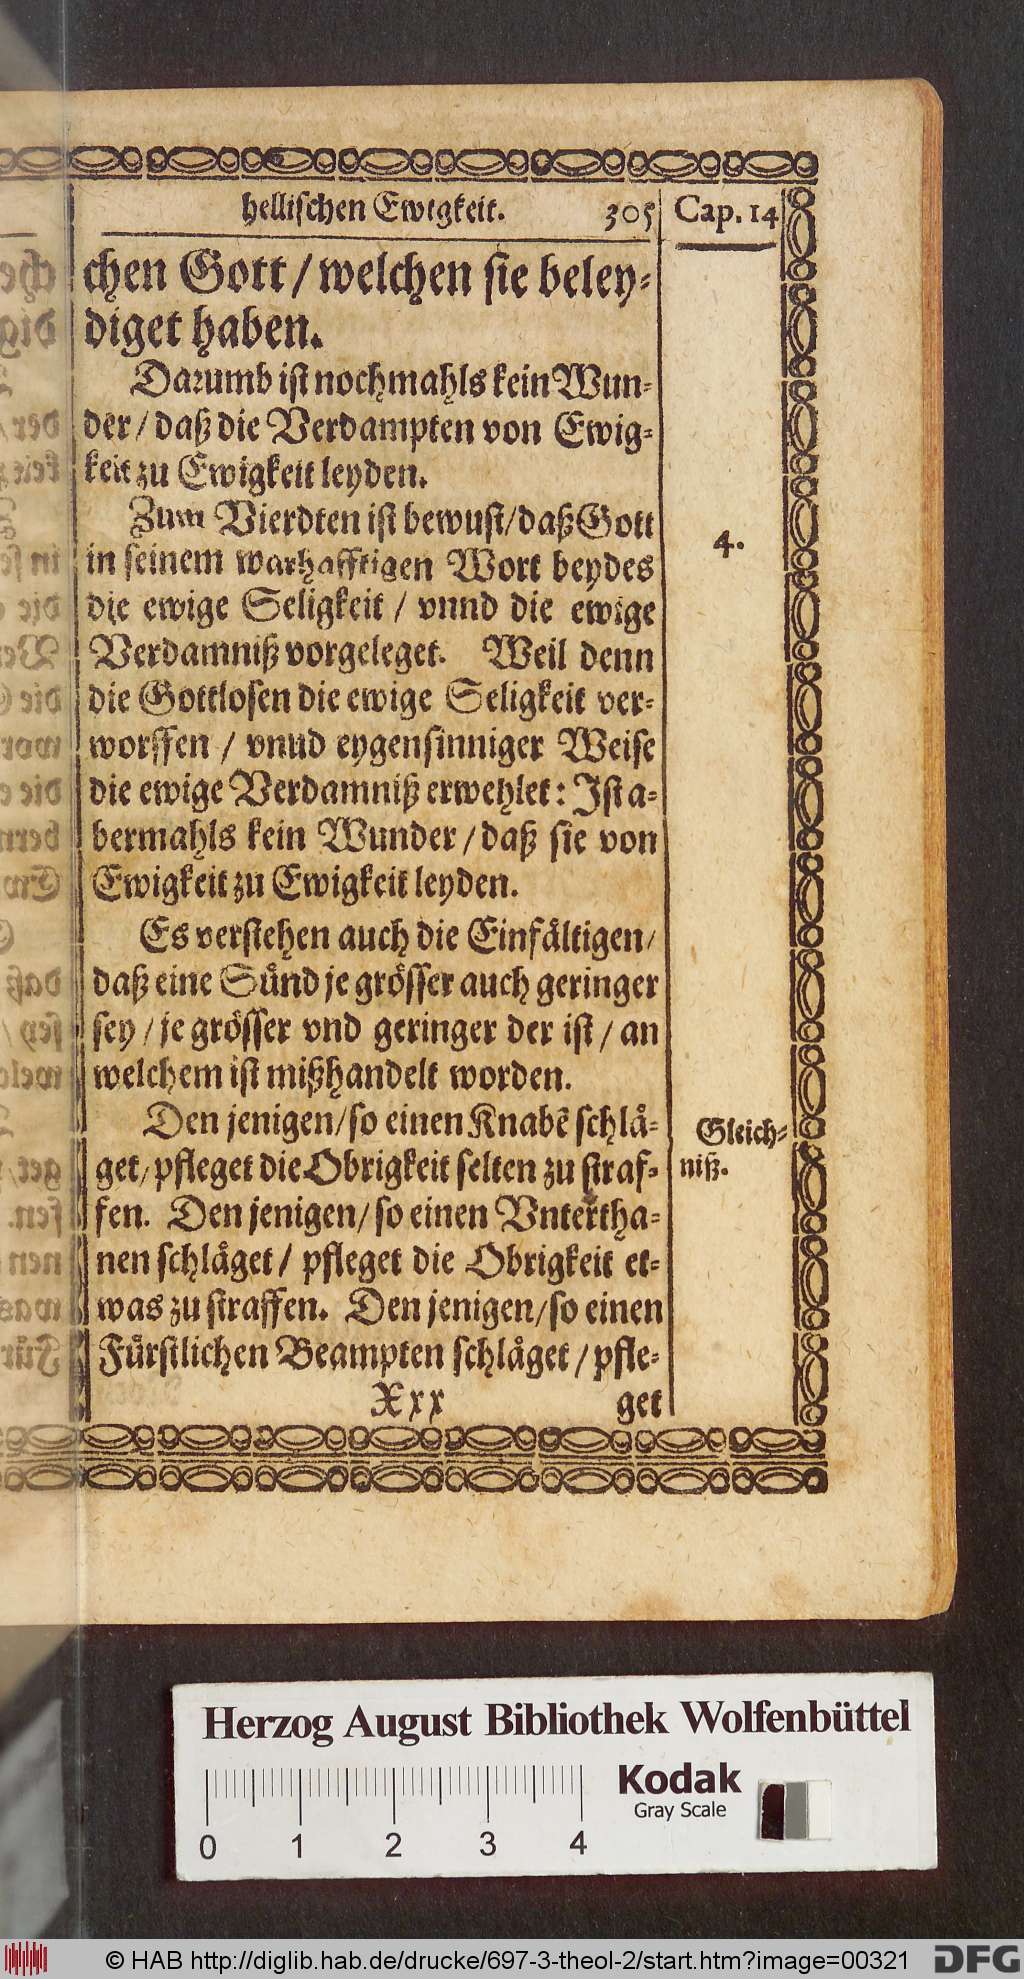 hellischen Ewigkeit. 305 Cap. 14
chen Gott / welchen sie beley⸗
diget haben.
Darumb ist nochmahls kein Wun⸗
der / daß die Verdampten von Ewig⸗
keit zu Ewigkeit leyden.
Zum Vierdten ist bewust / daß Gott
4.
in seinem warhafftigen Wort beydes
die ewige Seligkeit / vnnd die ewige
Verdamniß vorgeleget. Weil denn
die Gottlosen die ewige Seligkeit ver⸗
worffen / vnnd eygensinniger Weise
die ewige Verdamniß erwehlet: Ist a⸗
bermahls kein Wunder / daß sie von
Ewigkeit zu Ewigkeit leyden.
Es verstehen auch die Einfåltigen /
daß eine Sůnd je grösser auch geringer
sey / je grösser vnd geringer der ist / an
welchem ist mißhandelt worden.
Den jenigen / so einen Knabē schlå⸗
Gleich⸗
get / pfleget die Obrigkeit selten zu straf⸗
niß.
fen. Den jenigen / so einen Vntertha⸗
nen schlåget / pfleget die Obrigkeit et⸗
was zu straffen. Den jenigen / so einen
Fůrstlichen Beampten schlåget / pfle⸗
Xxx get
Herzog August Bibliothek Wolfenbüttel
Kodak
Gray Scale
0 1 2 3 4
© HAB http://diglib.hab.de/drucke/697-3-theol-2/start.htm?image=00321 DFG